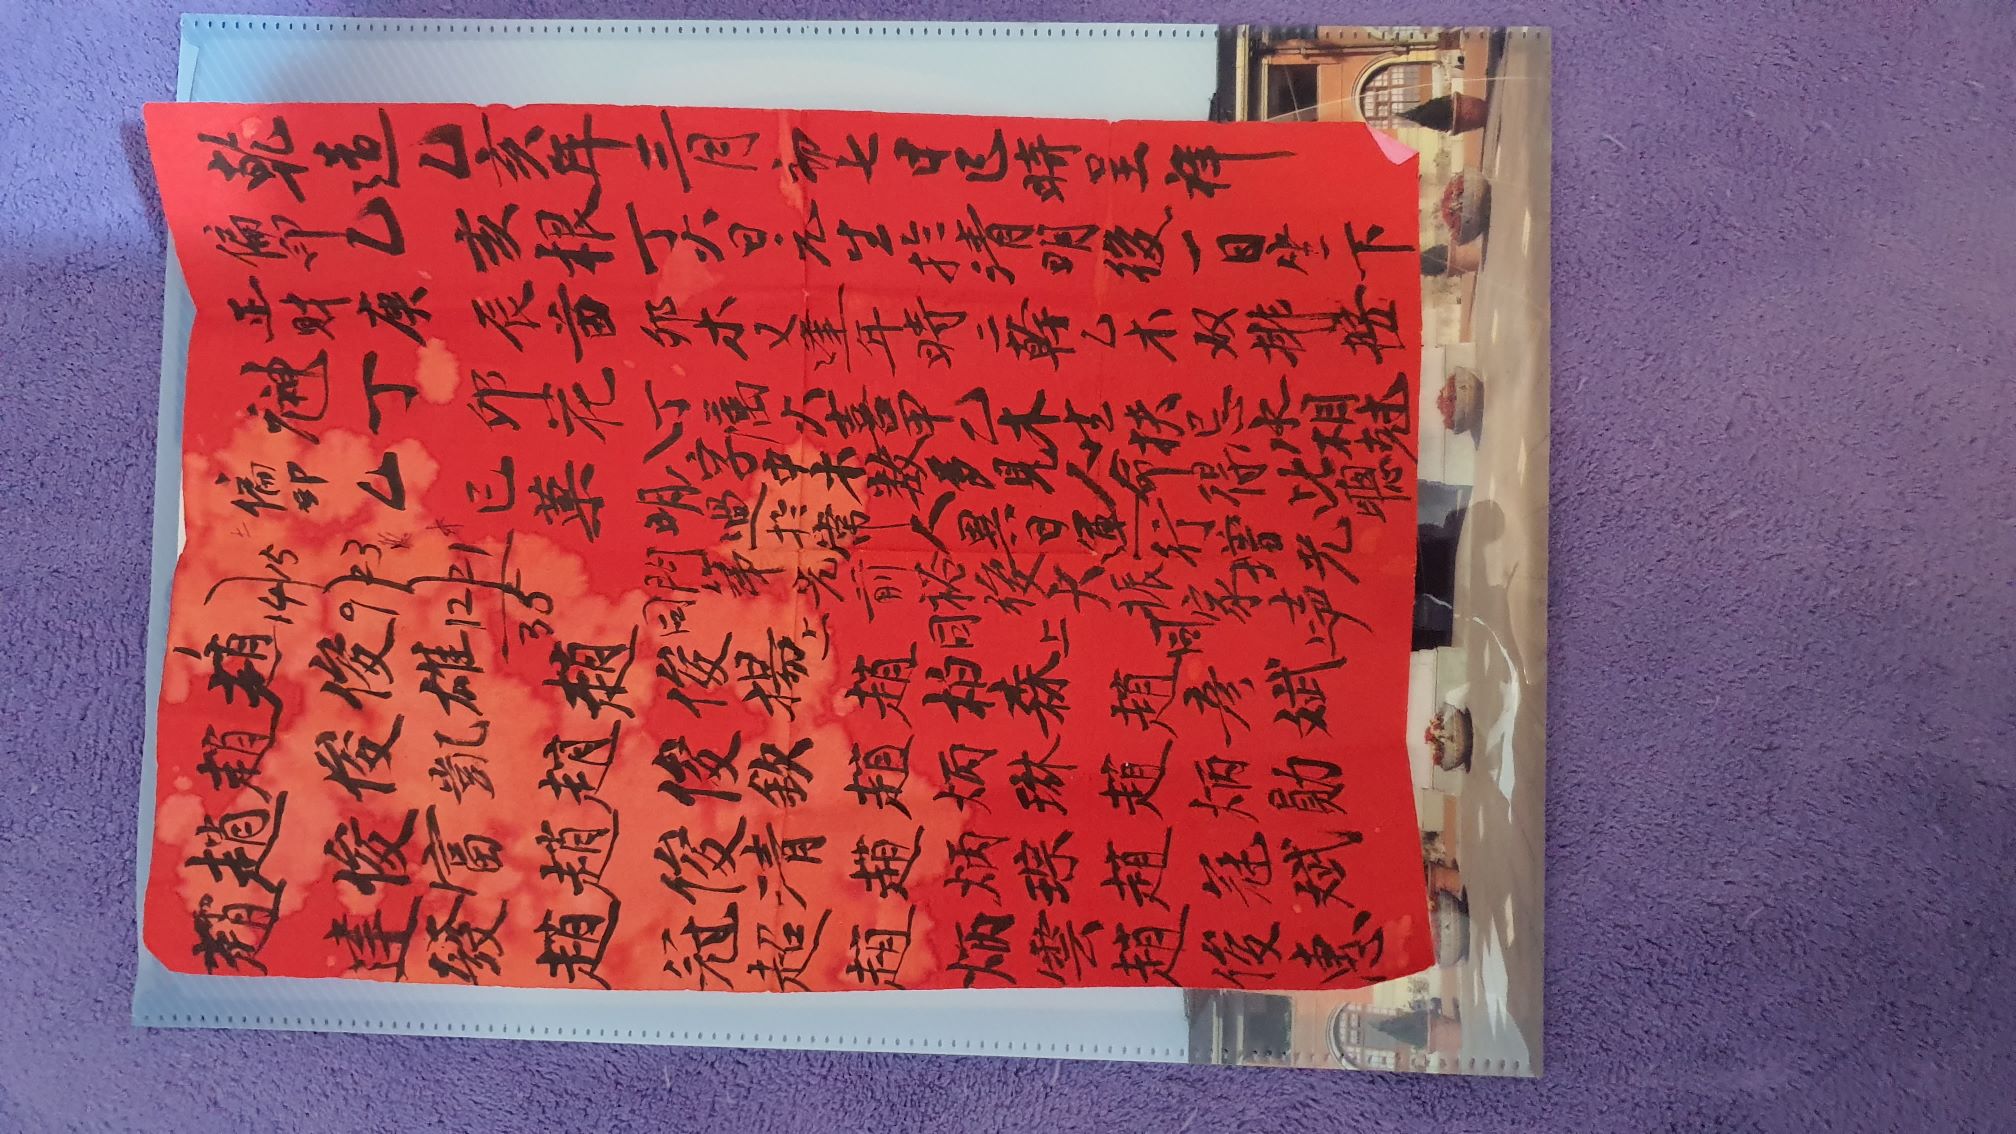 乾造乙亥年三月初七日巳時呈祥
偏印乙亥根丁火日元生於清明後一日坐下
正財庚辰苗卯木又逢年時二幹乙木双排接
元神丁卯花丁屬火喜甲乙木生扶忌水相尅
偏印乙巳葉八字中木数多見人命得此聰
明過於常人異日運行增光
門第光前裕後大振家声
同上同上同上
14 15
9 23
12 21
35
趙俊雄趙俊揚趙柏森趙彥斌
趙俊凱趙俊欽趙炳琳趙炳勛
趙俊富趙俊清趙炳琮趙冠斌
趙達發趙冠超趙炳雲趙俊惠